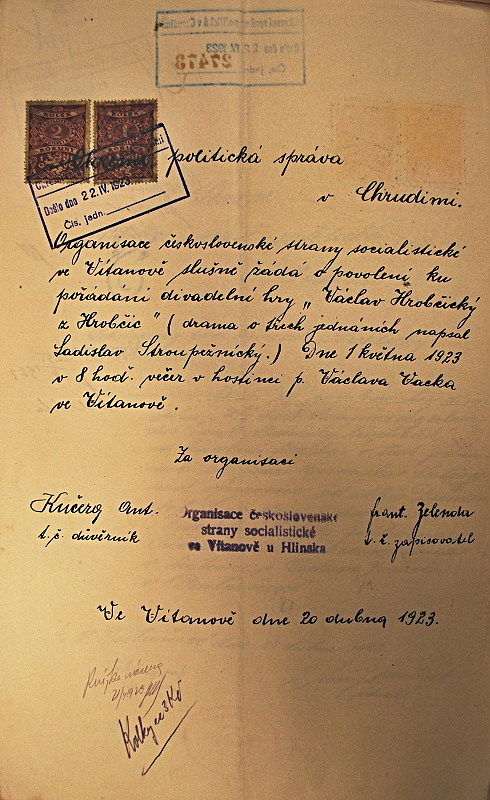 Došlo dne 22.IV.1923
27473
Čís. jedn.
KOLEK
2
KORUNY
KOLEK
1
KORUNA
politická správa
v Chrudimi.
Došlo dne 22.IV.1923
Čís. jedn.
Organisace československé strany socialistické
ve Vítanově slušně žádá o povolení ku
pořádání divadelní hry „Václav Hrobčický
z Hrobčic" (drama o třech jednáních napsal
Ladislav Stroupežnický.) Dne 1 května 1923
v 8 hod. večer v hostinci p. Václava Vacka
ve Vítanově.
Za organisaci
Kučera Ant.
t. č. důvěrník
Organisace československé
strany socialistické
ve Vítanově u Hlinska
frant. Zelenda
t. č. zapisovatel
Ve Vítanově dne 20 dubna 1923.